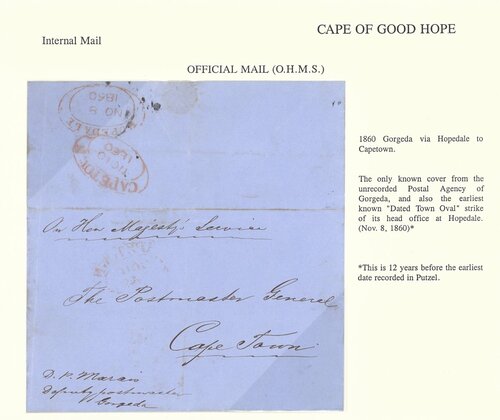 Internal Mail
CAPE OF GOOD HOPE
OFFICIAL MAIL (O.H.M.S.)
HOPEDALE
NO 8
1860
CAPE TOWN
NO 10
1860
On Her Majesty's Service
The Postmaster General
Cape Town
D. P. Marais
Deputy postmaster
Gorgeda
1860 Gorgeda via Hopedale to
Capetown.
The only known cover from the
unrecorded Postal Agency of
Gorgeda, and also the earliest
known "Dated Town Oval" strike
of its head office at Hopedale.
(Nov. 8, 1860)*
*This is 12 years before the earliest
date recorded in Putzel.